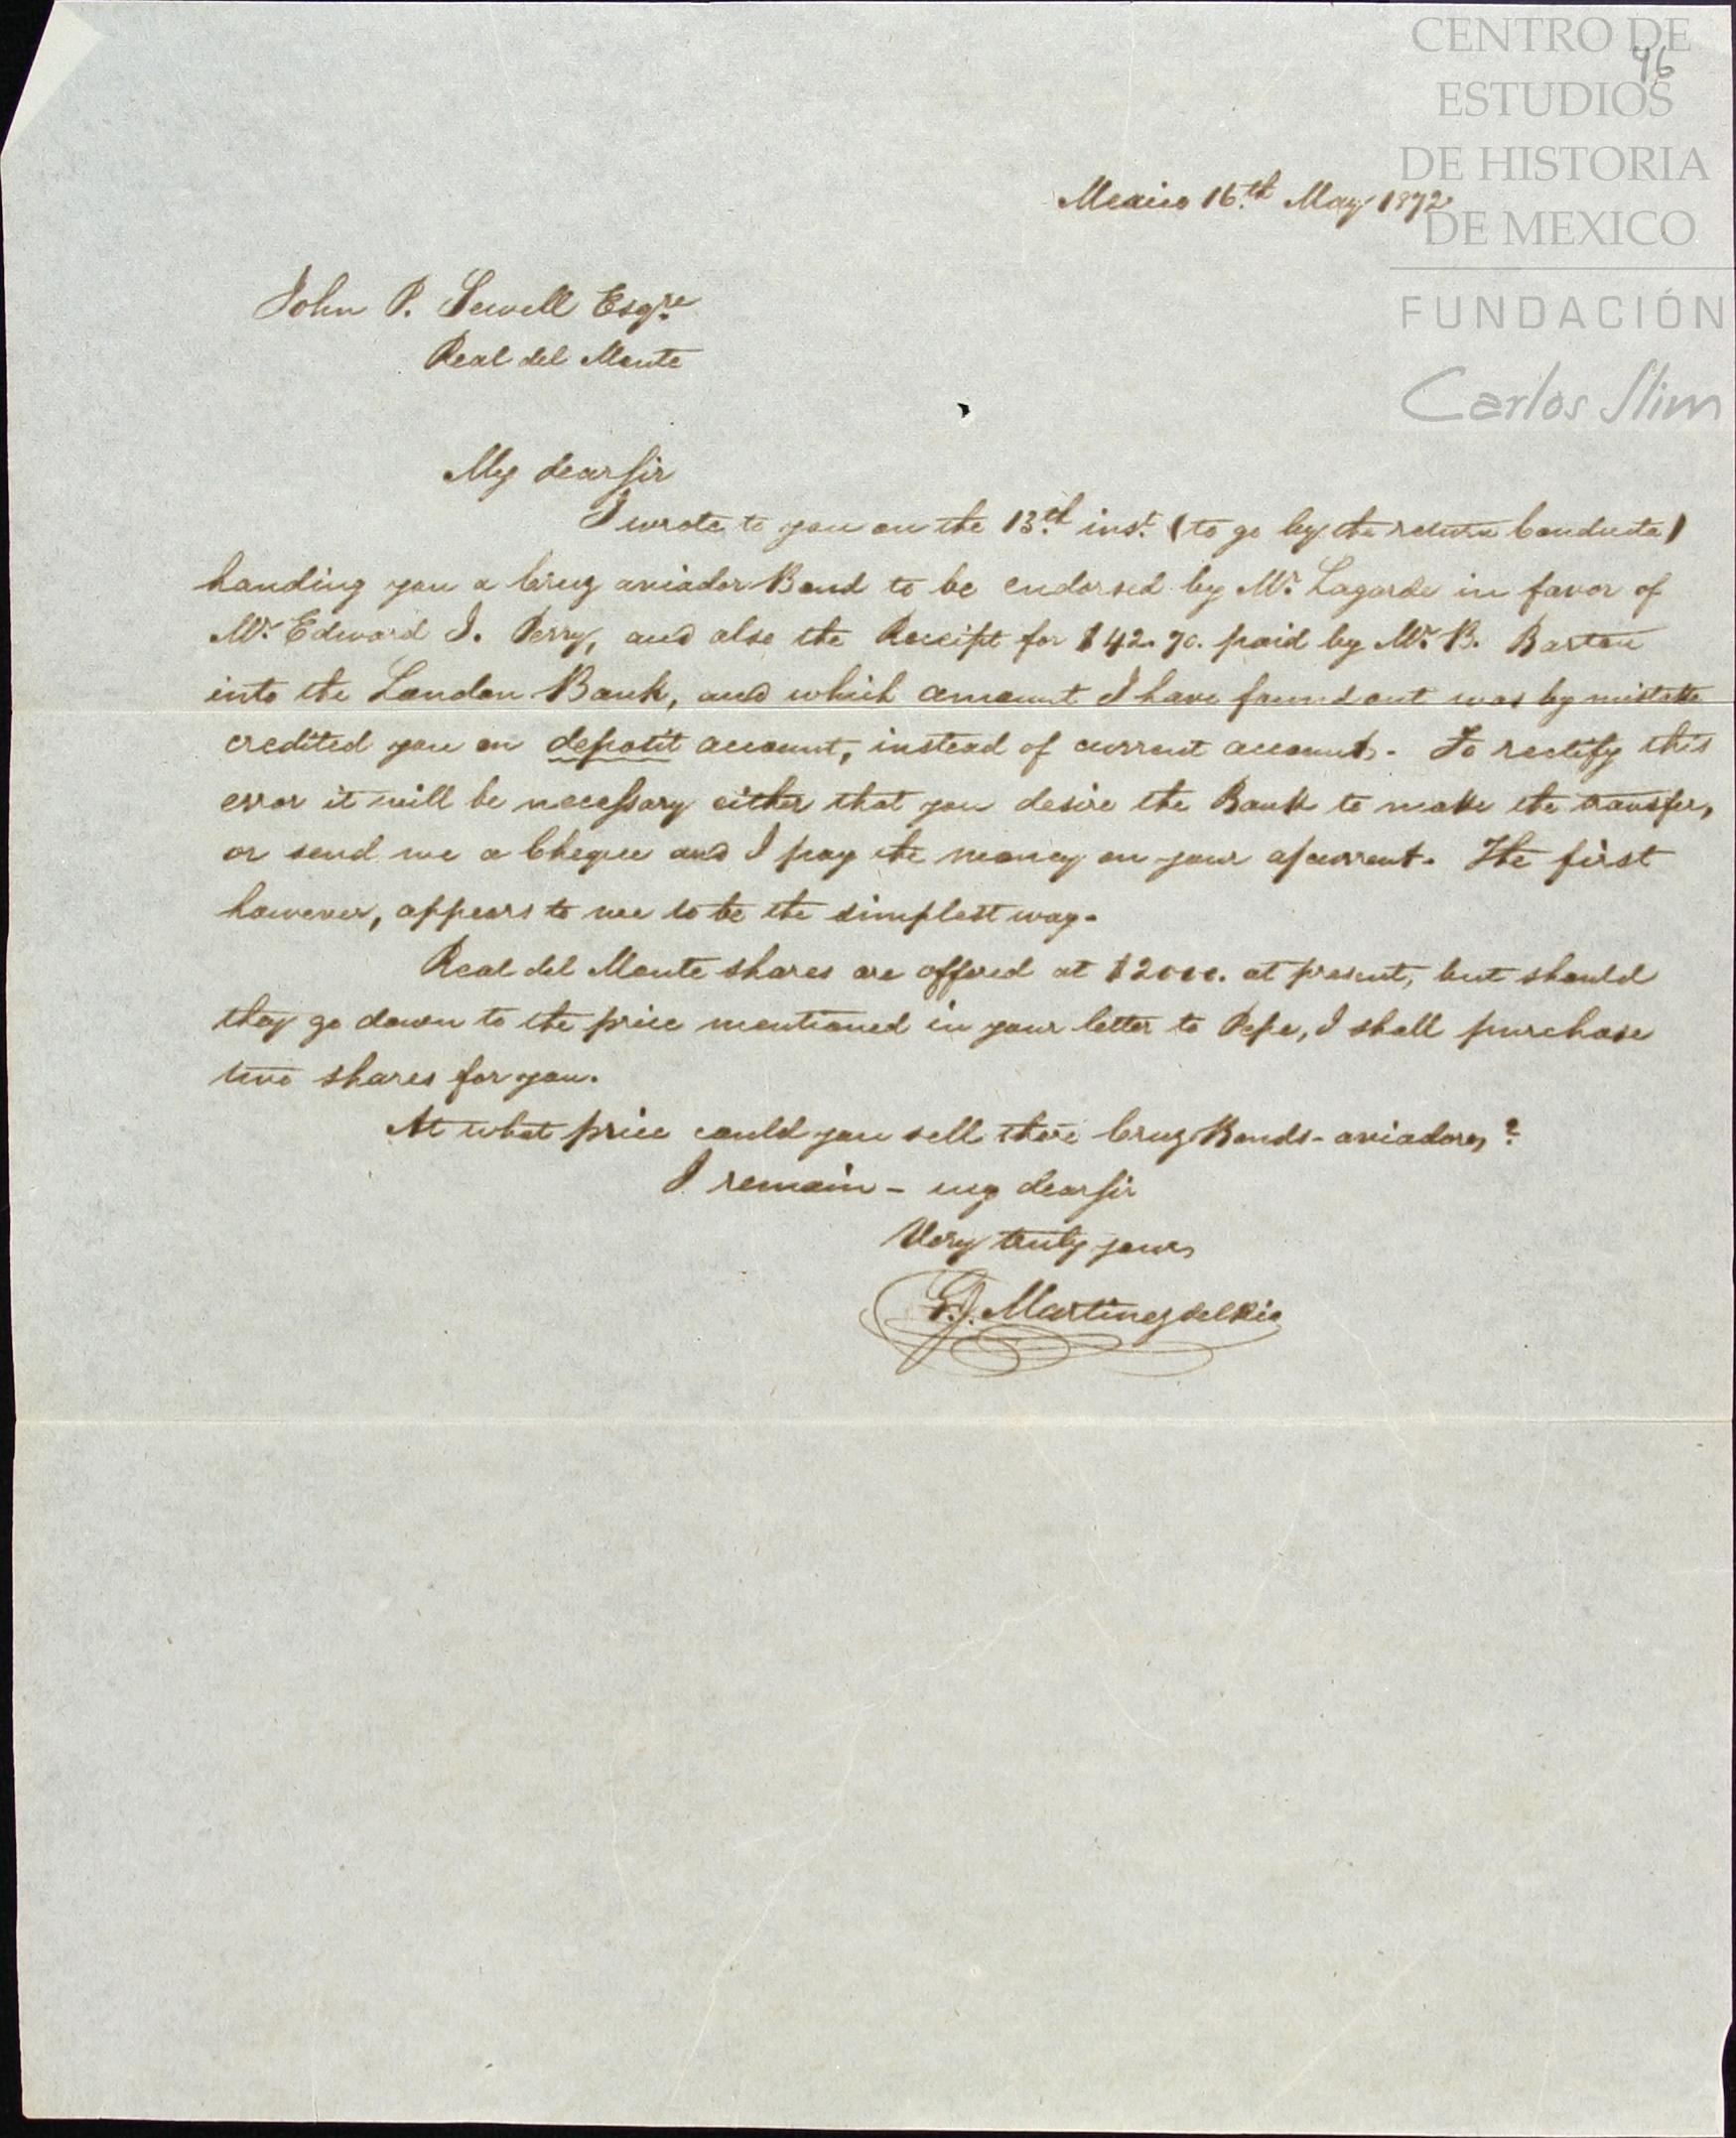 CENTRO DE
ESTUDIOS
DE HISTORIA
DE MEXICO
FUNDACIÓN
Carlos Slim
46
Mexico 16th May 1872
John P. Sewell Esqre
Real del Monte
My dear Sir
I wrote to you on the 13th inst. (to go by the return Conducta)
handing you a Cruz aviador Bond to be endorsed by Mr. Lagarde in favor of
Mr. Edward J. Perry, and also the Receipt for $42.70. paid by Mr. B. Barton
into the London Bank, and which amount I have found out was by mistake
credited you on deposit account, instead of current account. To rectify this
error it will be necessary either that you desire the Bank to make the transfer,
or send me a Cheque and I pay the money on your a/current. The first
however, appears to me to be the simplest way.
Real del Monte shares are offered at $2000. at present, but should
they go down to the price mentioned in your letter to Pepe, I shall purchase
two shares for you.
At what price could you sell there Cruz Bonds - aviadores?
I remain - my dear Sir
Very truly yours
Martinez del Rio